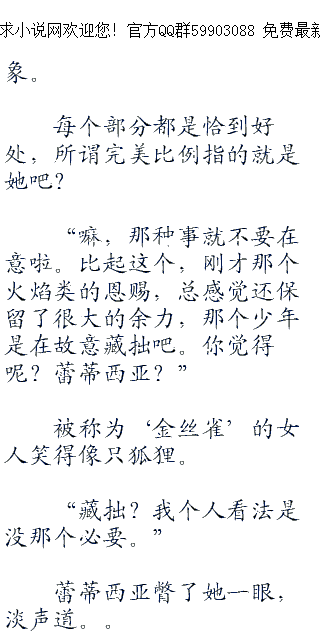 求小说网欢迎您！官方QQ群59903088 免费最新
象。
每个部分都是恰到好
处，所谓完美比例指的就是
她吧？
“嘛，那种事就不要在
意啦。比起这个，刚才那个
火焰类的恩赐，总感觉还保
留了很大的余力，那个少年
是在故意藏拙吧。你觉得
呢？蕾蒂西亚？”
被称为‘金丝雀’的女
人笑得像只狐狸。
“藏拙？我个人看法是
没那个必要。”
蕾蒂西亚瞥了她一眼，
淡声道。。